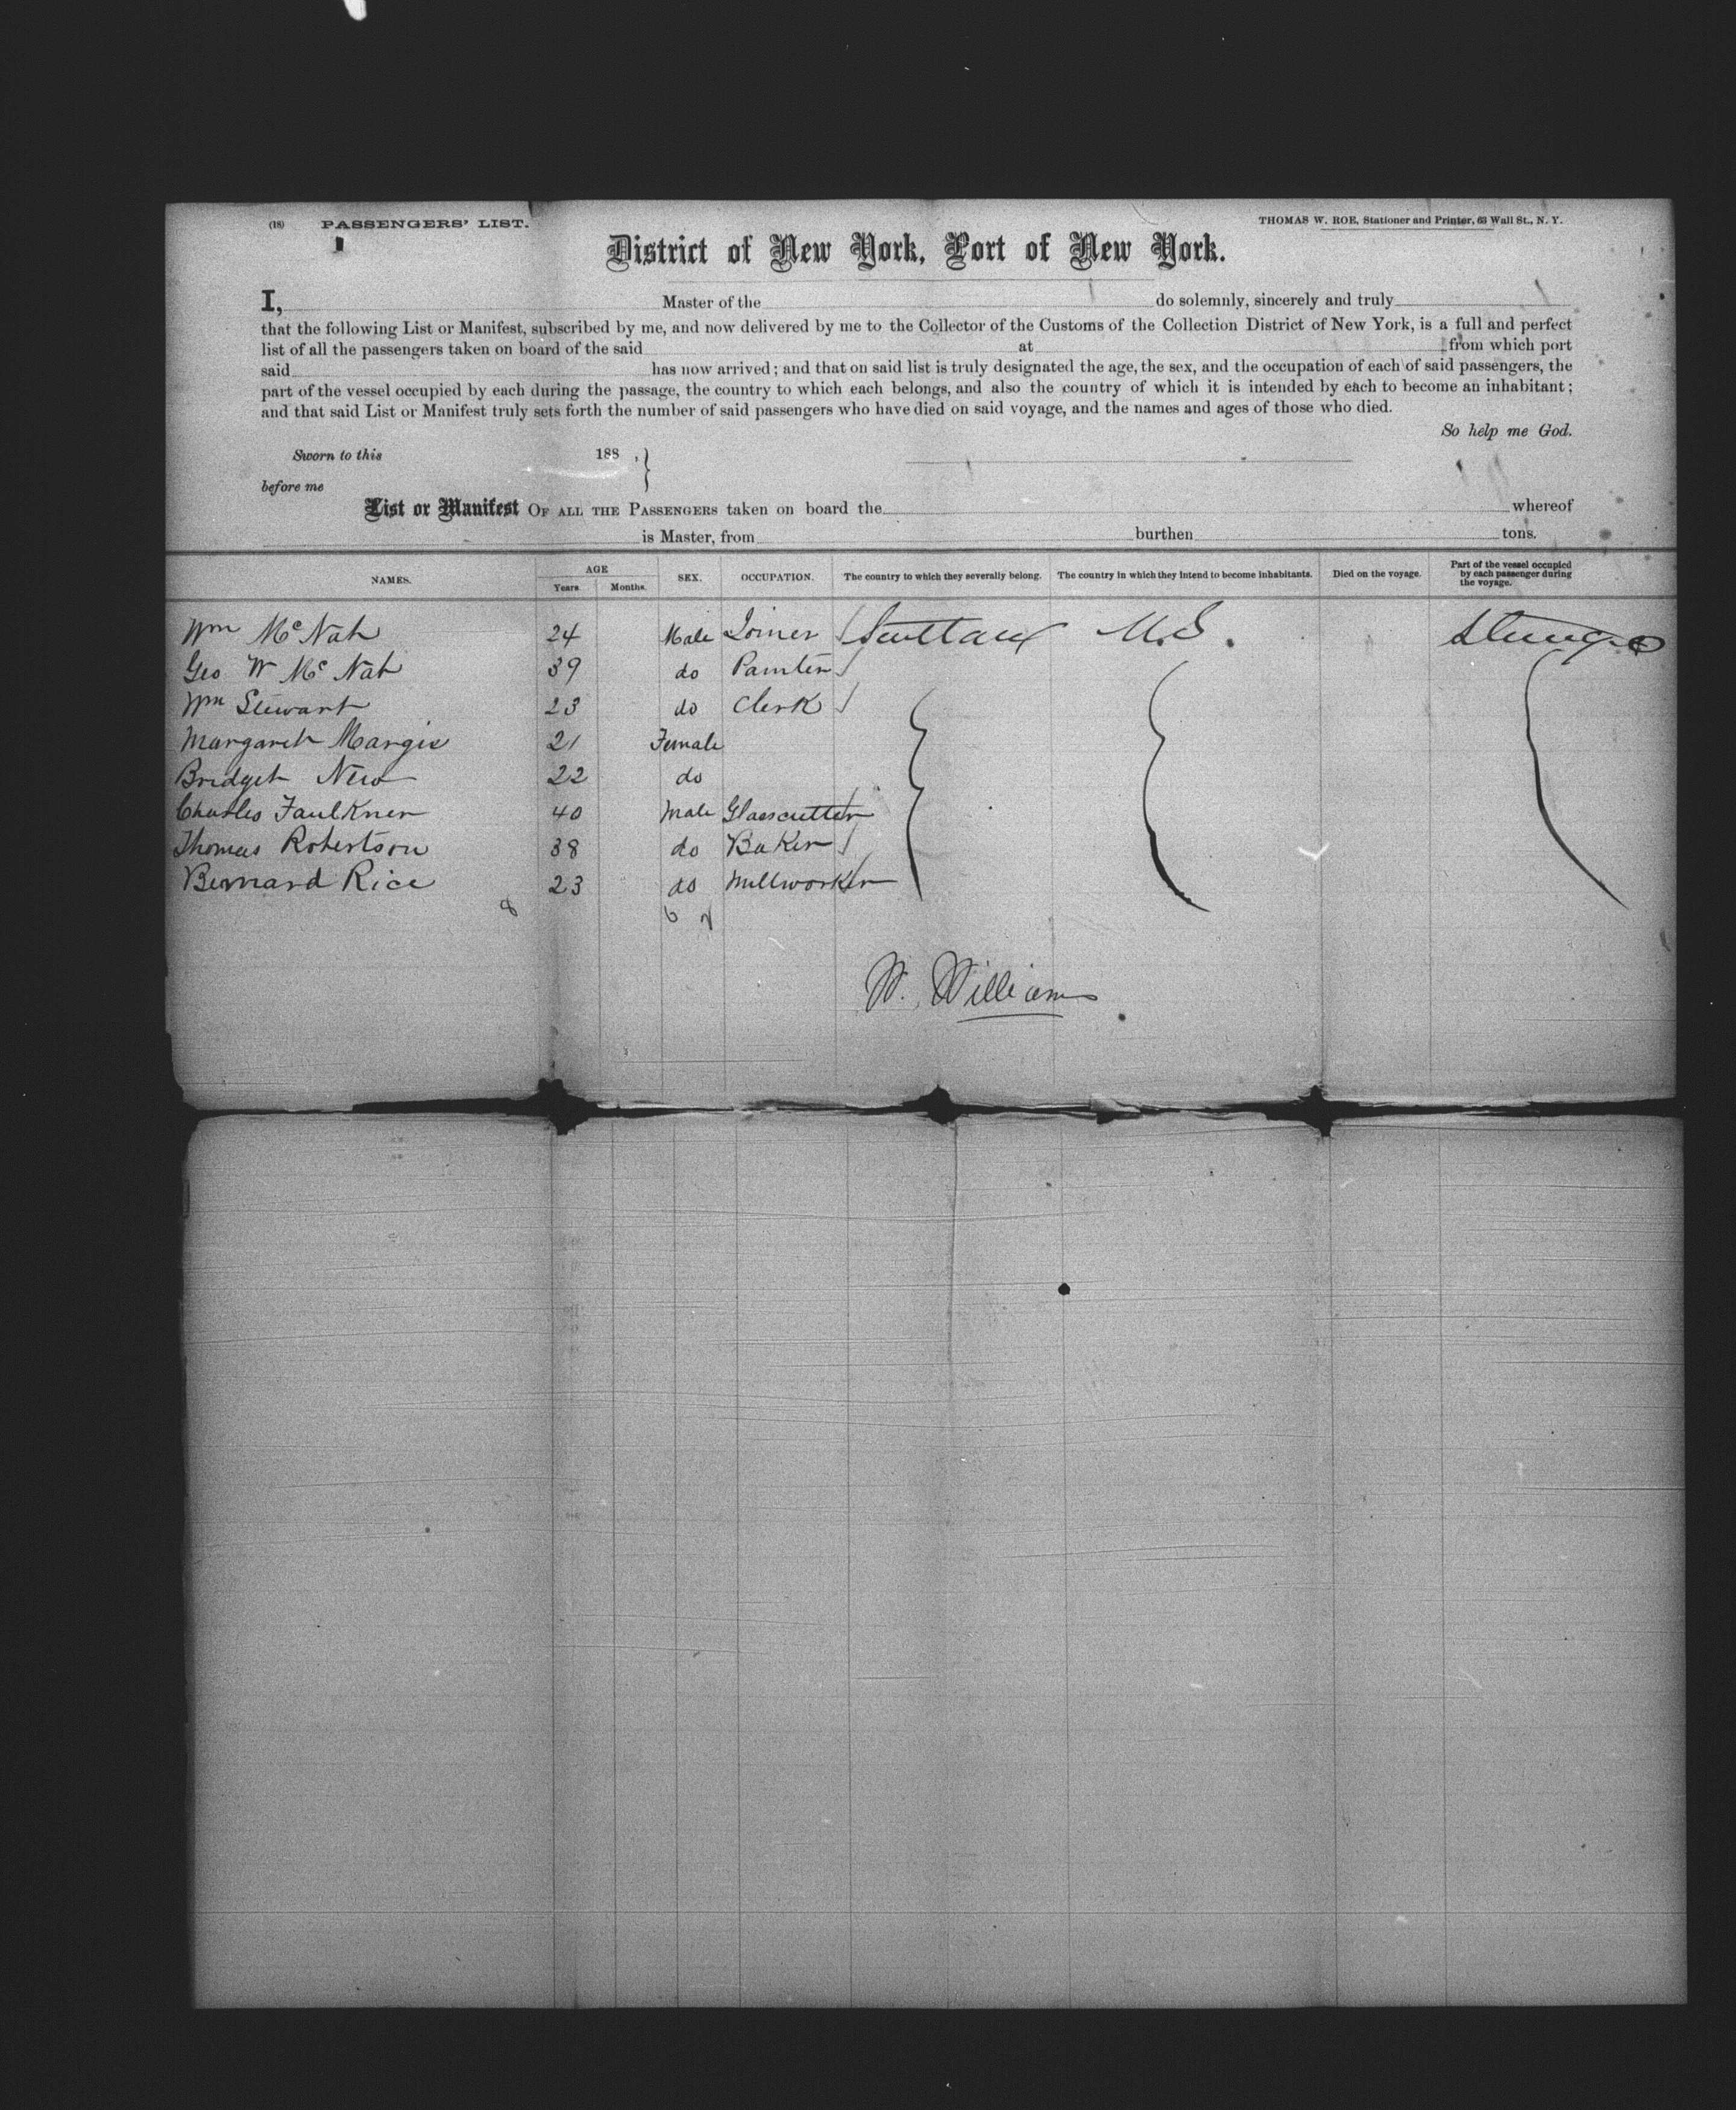 (18) PASSENGERS' LIST. THOMAS W. ROE, Stationer and Printer, 63 Wall St., N. Y.
District of New York, Port of New York.
I, Master of the do solemnly, sincerely and truly
that the following List or Manifest, subscribed by me, and now delivered by me to the Collector of the Customs of the Collection District of New York, is a full and perfect
list of all the passengers taken on board of the said at from which port
said has now arrived; and that on said list is truly designated the age, the sex, and the occupation of each of said passengers, the
part of the vessel occupied by each during the passage, the country to which each belongs, and also the country of which it is intended by each to become an inhabitant;
and that said List or Manifest truly sets forth the number of said passengers who have died on said voyage, and the names and ages of those who died.
So help me God.
Sworn to this 188 , }
before me
List or Manifest OF ALL THE PASSENGERS taken on board the whereof
is Master, from burthen tons.
NAMES. AGE Years Months. SEX. OCCUPATION. The country to which they severally belong. The country in which they intend to become inhabitants. Died on the voyage. Part of the vessel occupied by each passenger during the voyage.
Wm McNab 24 Male Joiner Scotland U.S. Steerage
Geo W McNab 39 do Painter
Wm Stewart 23 do Clerk
Margaret 21 Female
Bridget 22 do
Charles Faulkner 40 Male Glasscutter
Thomas Robertson 38 do Baker
Bernard Rice 23 do Millworker
8 6 2
W. Williams